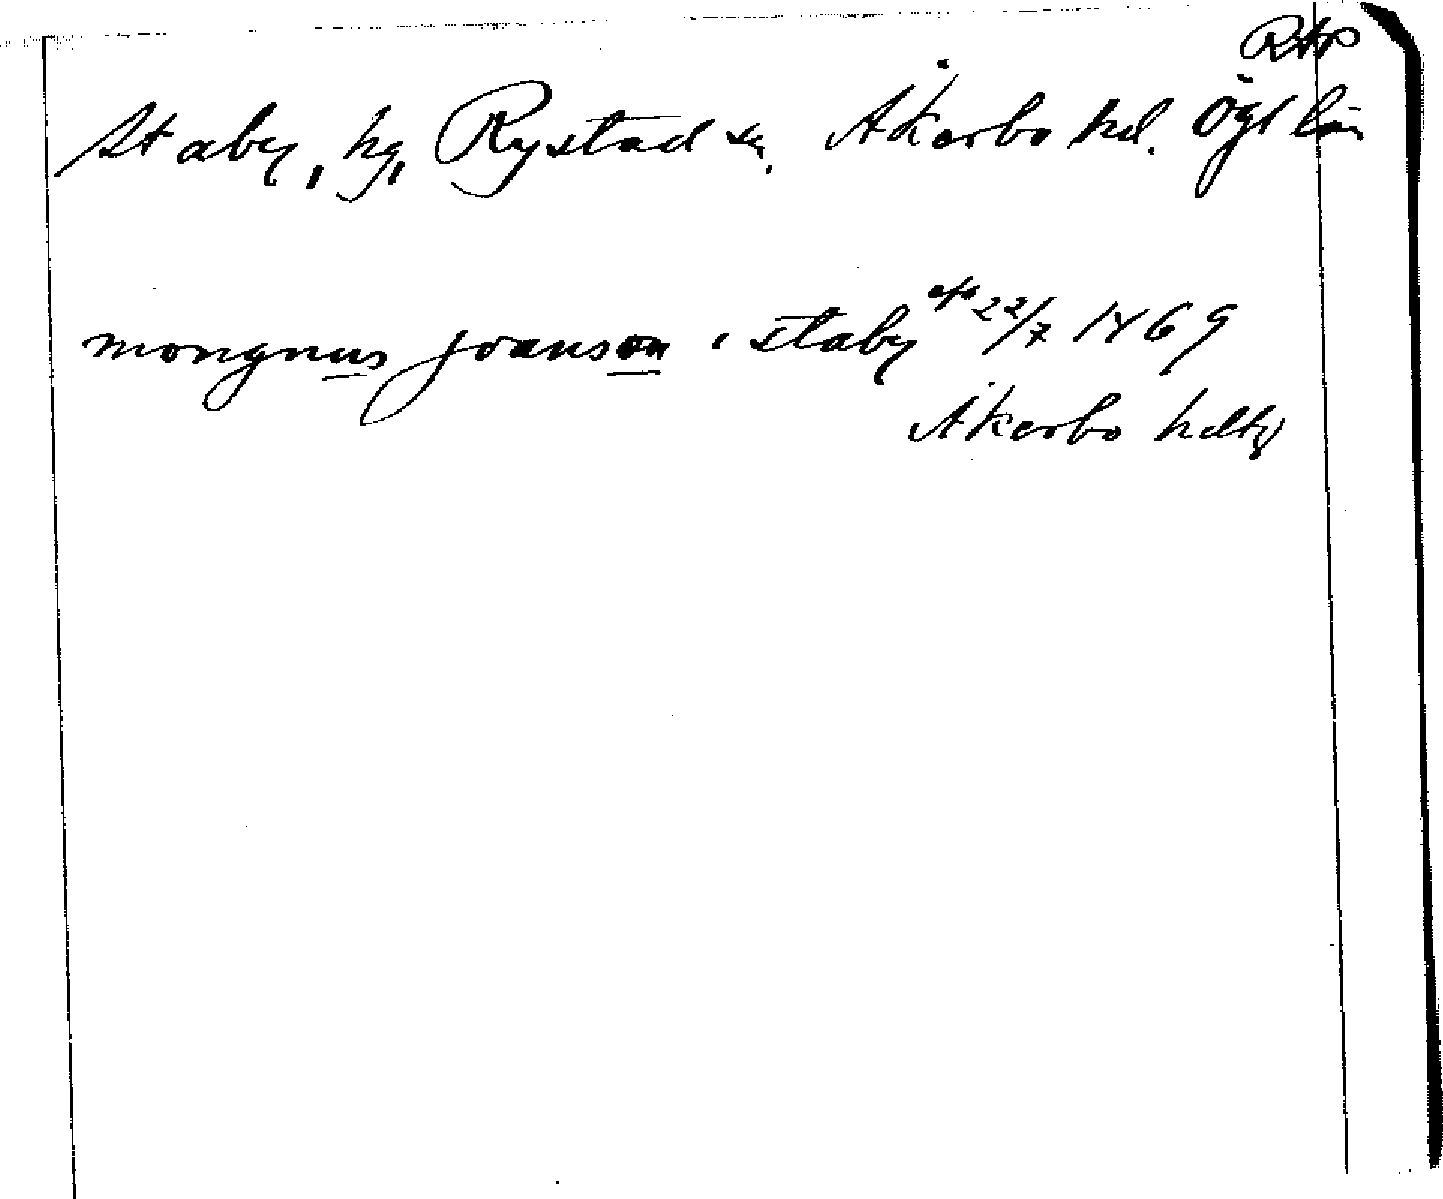 RAp
Staby, hg, Rystad sn. Åkerbo hd. Ögl län
mongnus joanson i staby 22/7 1469
Åkerbo hdtg